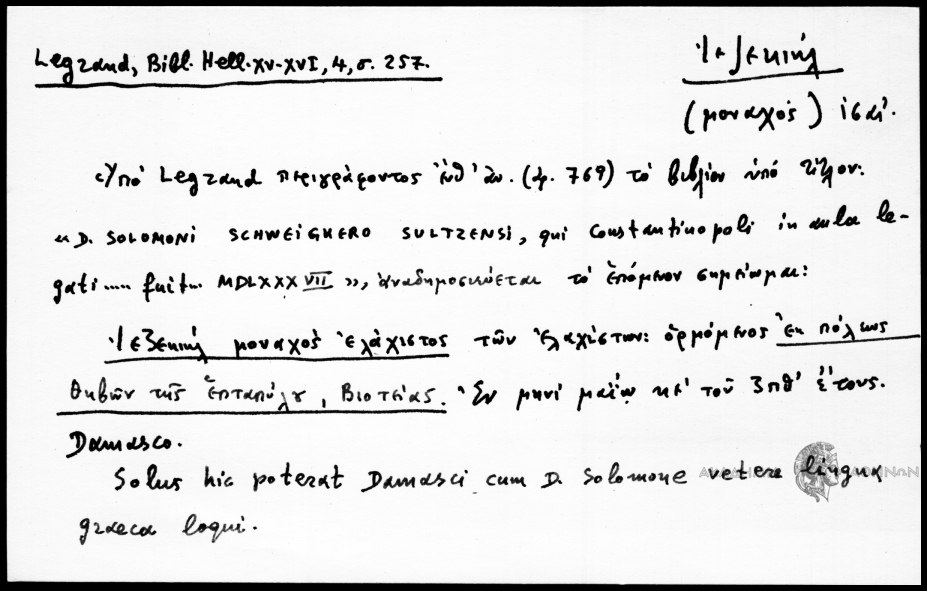 Legrand, Bibl. Hell. XV-XVI, 4, σ. 257.
Ἰεζεκιήλ
(μοναχός) ιϛ' αἰ.
Ὑπό Legrand περιγράφοντος (ἀρ. 769) τό βιβλίον ὑπό τίτλον:
« D. SOLOMONI SCHWEIGKERO SULTZENSI, qui Constantinopoli in aula le-
gati .... fuit... MDLXXXVII », ἀναδημοσιεύεται τό ἑπόμενον σημείωμα:
Ἰεζεκιήλ μοναχός ἐλάχιστος τῶν ἐλαχίστων: ὁρμόμενος ἐκ πόλεως
θηβῶν τῆς ἑπταπύλου, Βιοτείας. Ἐν μηνί μαΐῳ κε' τοῦ ζπθ' ἔτους.
Damasco.
Solus hic poterat Damasci cum D. Solomone vetere lingua
graeca loqui.